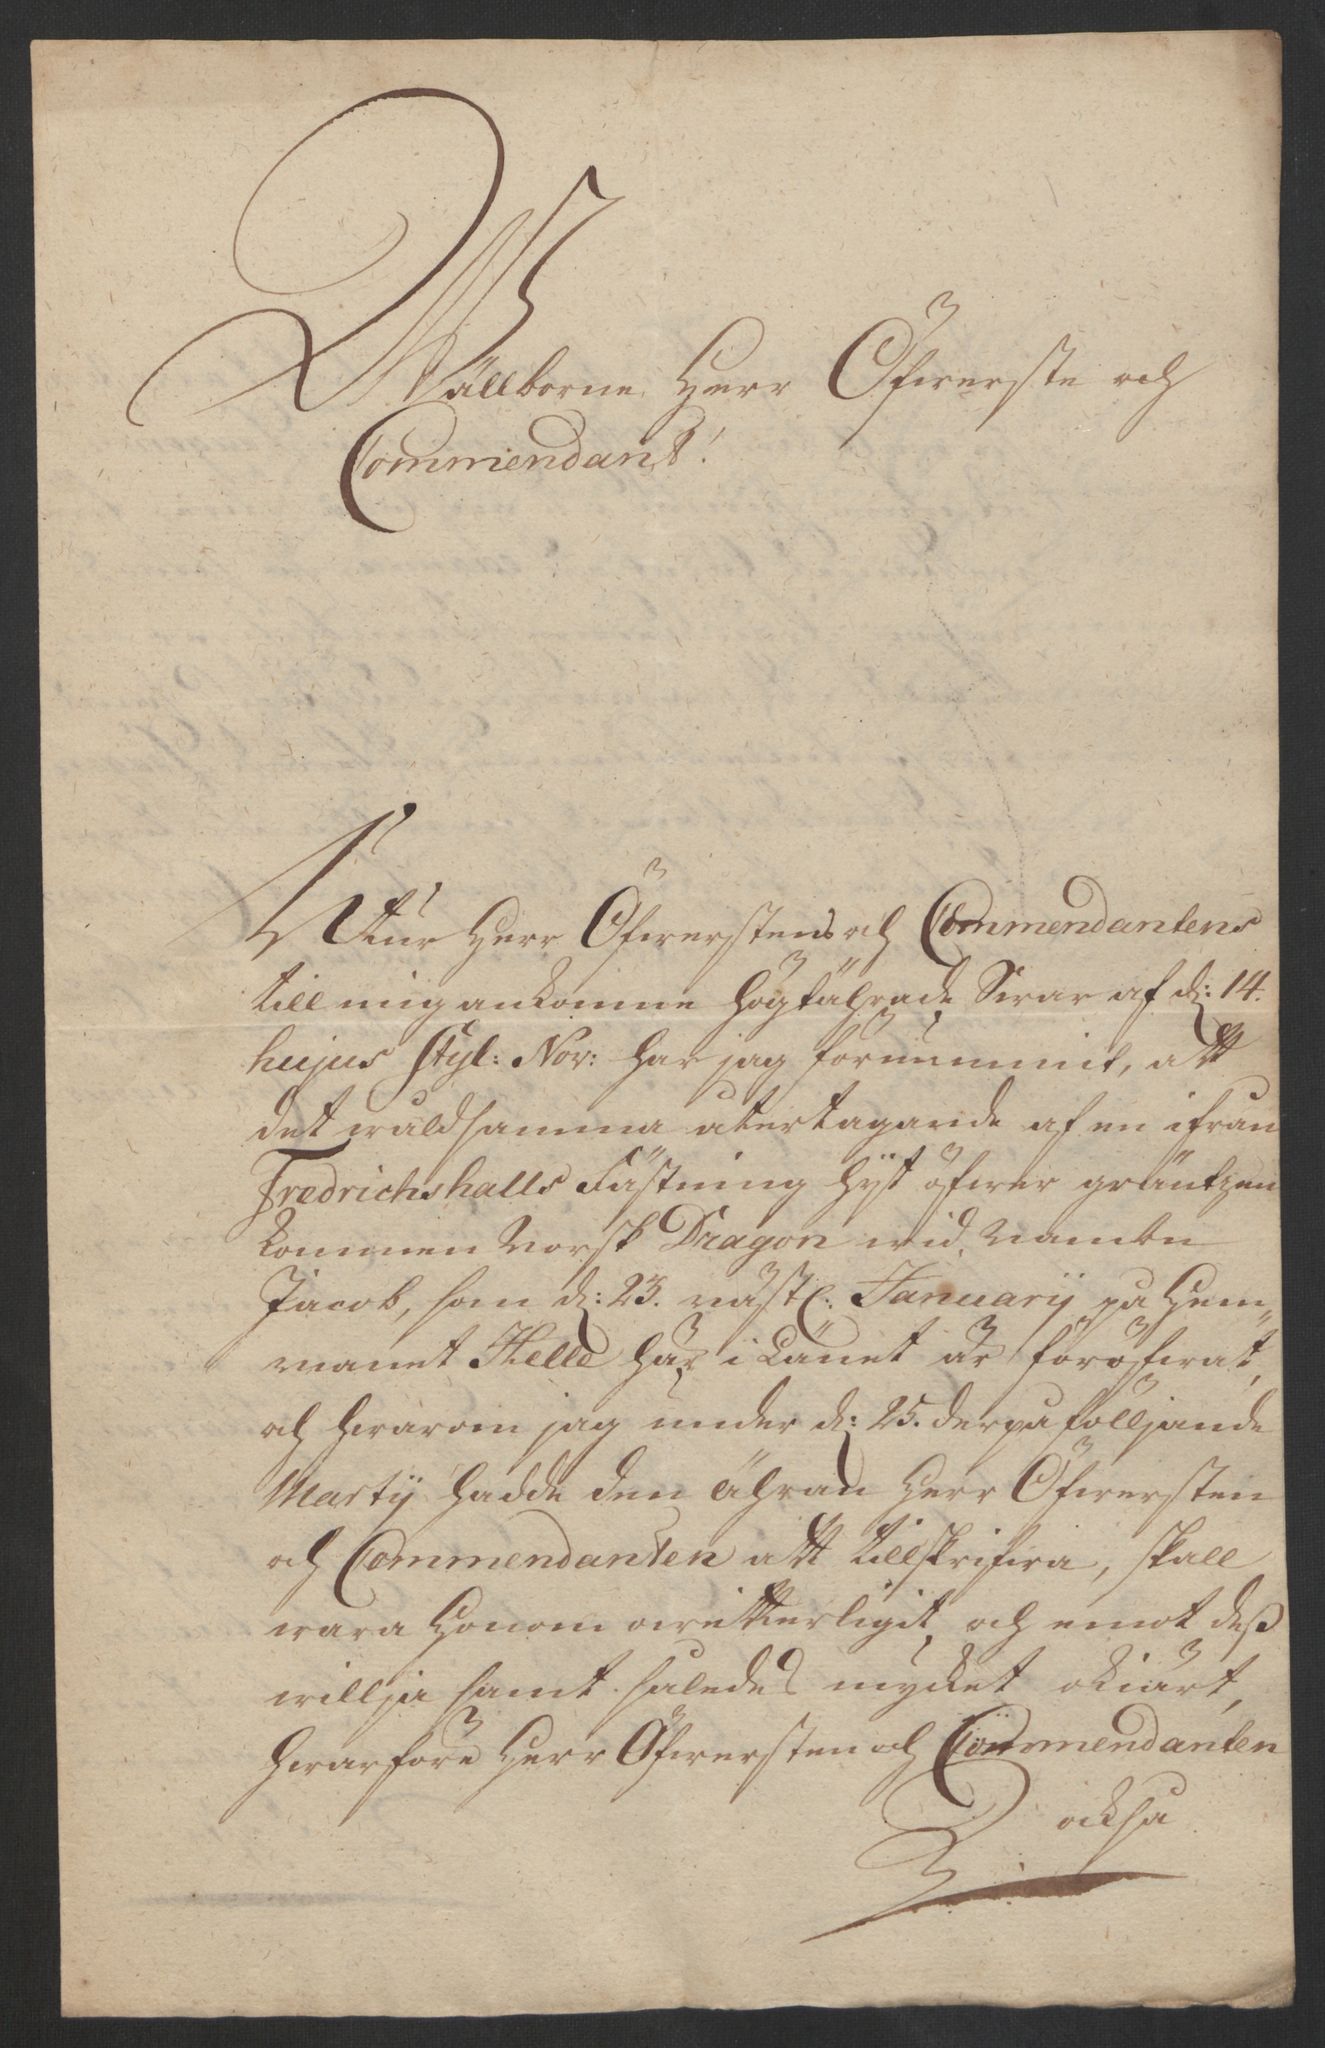 Wälborne Herr Öfwerste och
Commendant!
Utur Herr Öfwerstens och Commendantens
till mig ankomne högtährade Swar af d: 14.
hujus Styl: Nov: har jag förnummit, att
det wåldsamma återtagande af en ifrån
Fredrichshalls Fästning hijt öfwer gräntzen
kommen Norsk Dragon wid Namn
Jacob, som d: 23. näst l: Januarij på Hem„
manet Helle här i Länet är föröfwat,
och hwarom jag under d: 25. derpå följande
Martij hadde den ähran Herr Öfwersten
och Commendanten att tillskrifwa, skall
wara Honom owetterligit, och emot dess
willja samt således mycket okiärt,
hwarföre Herr Öfwersten och Commendanten
också